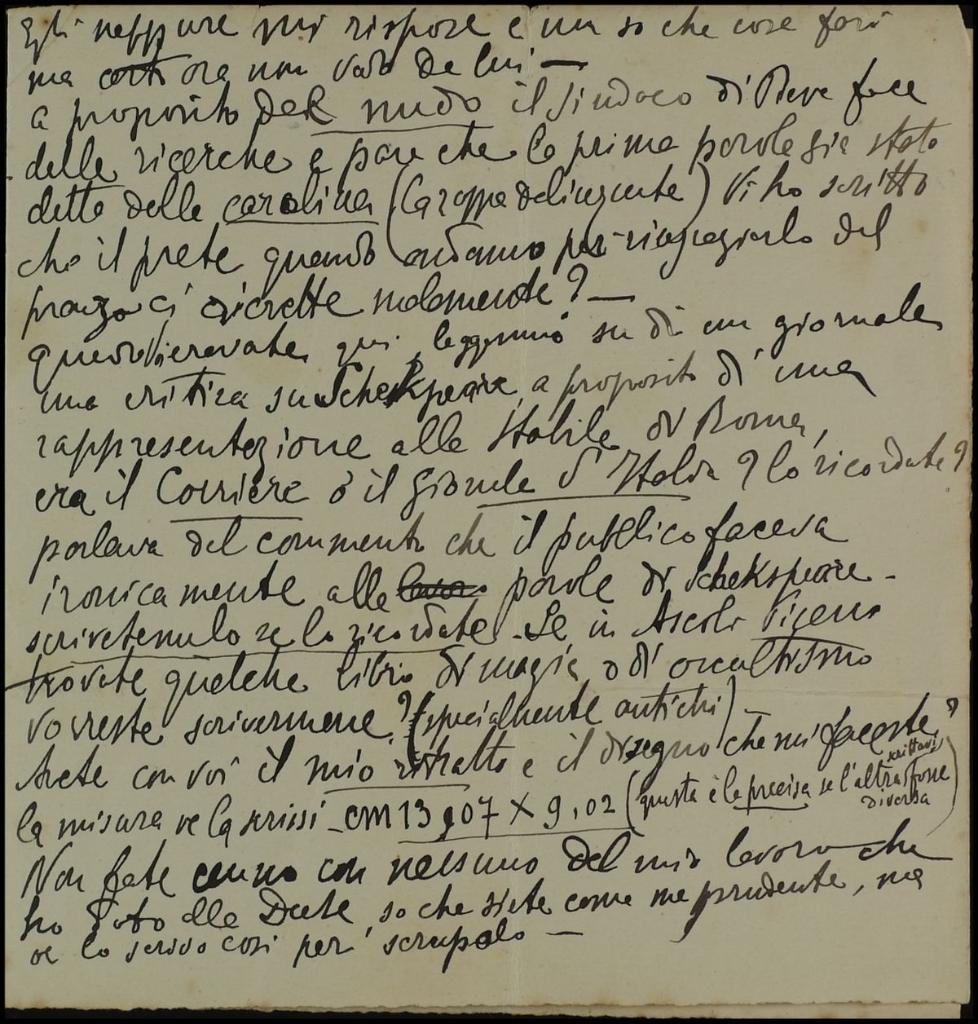 Egli neppure mi rispose e non so che cosa farà
ma ora non vado da lui —
a proposito del nudo il sindaco di Pieve fece
delle ricerche e pare che la prima parola sia stata
detta dalla carolina (la zoppa delinquente) Vi ho scritto
che il prete quando andammo per ringraziarlo del
pranzo ci ricevette malamente? —
quando Vi eravate qui, leggemmo su di un giornale
una critica su Schekspeare, a proposito d'una
rappresentazione alla Stabile di Roma,
era il Corriere o il Giornale d'Italia? lo ricordate?
parlava del commento che il pubblico faceva
ironicamente alle parole di Schekspeare -
scrivetemelo se lo ricordate - Se in Ascoli Piceno
trovate qualche libro di magia o di occultismo
vorreste scrivermene? (specialmente antichi) -
Avete con voi il mio ritratto e il disegno che mi faceste?
la misura ve la scrissi - cm 13,07 X 9,02 (questa è la precisa se l'altra scrittavi fosse diversa)
Non fate cenno con nessuno del mio lavoro che
ho dato alla Deste, so che siete come me prudente, ma
ve lo scrivo così per scrupolo —